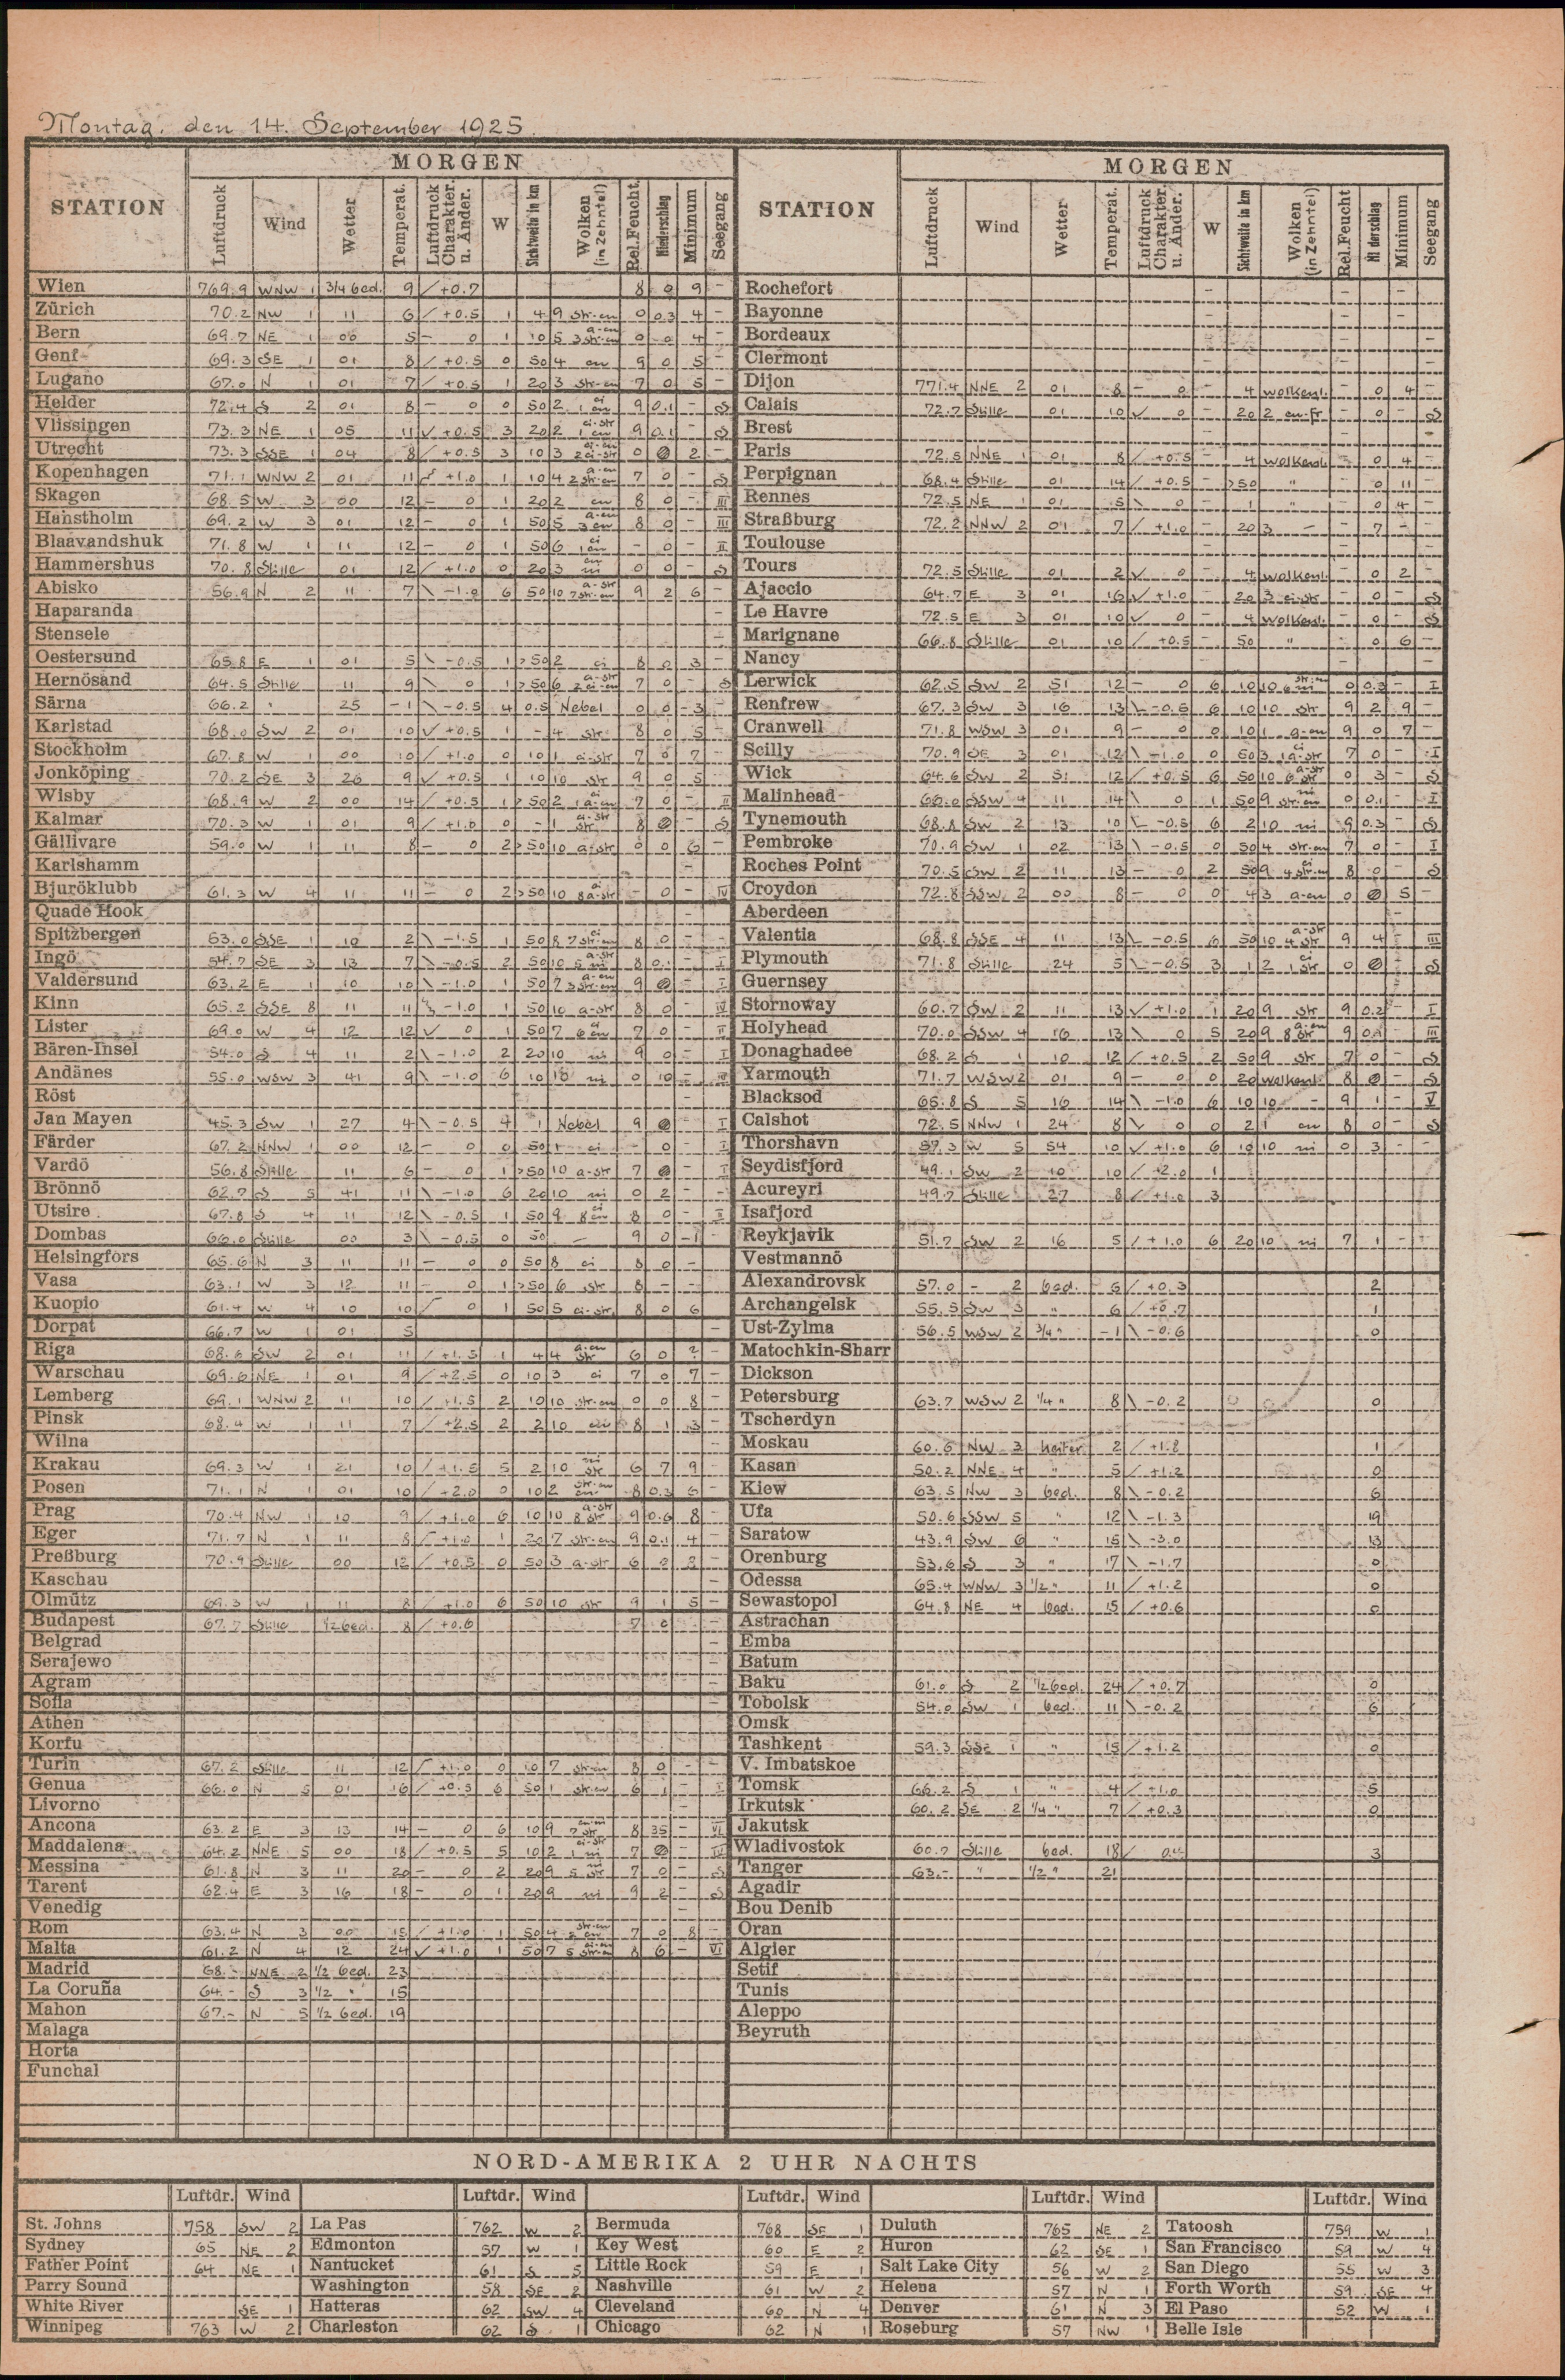 Montag, den 14. September 1925.
MORGEN MORGEN
STATION Luftdruck Wind Wetter Temperat. Luftdruck Charakter. u. Änder. W Sichtweite in km Wolken (in Zehntel) Rel.Feucht. Niederschlag Minimum Seegang STATION Luftdruck Wind Wetter Temperat. Luftdruck Charakter. u. Änder. W Sichtweite in km Wolken (in Zehntel) Rel.Feucht Minimum Seegang
Wien 769.9 WNW 1 3/4 bed. 9 / +0.7 8 0 9 - Rochefort - - -
Zürich 70.2 NW 1 11 6 / +0.5 1 4 9 str-cu 0 0.3 4 - Bayonne - - -
Bern 69.7 NE 1 00 5 - 0 1 10 5 a-cu 3 str-cu 0 0 4 - Bordeaux - - -
Genf 69.3 SE 1 01 8 / +0.5 0 50 4 cu 9 0 5 - Clermont - - -
Lugano 67.0 N 1 01 7 / +0.5 1 20 3 str-cu 7 0 5 - Dijon 771.4 NNE 2 01 8 - 0 - 4 wolkenl. - 0 4 -
Helder 72.4 S 2 01 8 - 0 0 50 2 ci 1 cu 9 0.1 - S Calais 72.7 Stille 01 10 √ 0 - 20 2 cu-fr - 0 - S
Vlissingen 73.3 NE 1 05 11 √ +0.5 3 20 2 ci-str 1 cu 9 0.1 - S Brest - - -
Utrecht 73.3 SSE 1 04 8 / +0.5 3 10 3 ci-cu 2 ci-str 0 Ø 2 - Paris 72.5 NNE 1 01 8 / +0.5 - 4 wolkenl. - 0 4 -
Kopenhagen 71.1 WNW 2 01 11 +1.0 1 10 4 a-cu 2 str-cu 7 0 - S Perpignan 68.4 Stille 01 14 / +0.5 - >50 " - 0 11 -
Skagen 68.5 W 3 00 12 - 0 1 20 2 cu 8 0 - III Rennes 72.5 NE 1 01 5 \ 0 - 1 " - 0 4 -
Hanstholm 69.2 W 3 01 12 - 0 1 50 5 a-cu 3 cu 8 0 - III Straßburg 72.2 NNW 2 01 7 / +1.0 - 20 3 - - 7 - -
Blaavandshuk 71.8 W 1 11 12 - 0 1 50 6 ci 1 cu - 0 - II Toulouse - - -
Hammershus 70.8 Stille 01 12 / +1.0 0 20 3 0 0 - S Tours 72.5 Stille 01 2 √ 0 - 4 wolkenl. - 0 2 -
Abisko 56.9 N 2 11 7 \ -1.0 6 50 10 a-str 7 str-cu 9 2 6 - Ajaccio 64.7 E 3 01 16 √ +1.0 - 20 3 ci-str - 0 - S
Haparanda - Le Havre 72.5 E 3 01 10 √ 0 - 4 wolkenl. - 0 - S
Stensele - Marignane 66.8 Stille 01 10 / +0.5 - 50 " - 0 6 -
Oestersund 65.8 E 1 01 5 \ -0.5 1 >50 2 ci 8 0 3 - Nancy - - -
Hernösand 64.5 Stille 11 9 \ 0 1 >50 6 a-str 2 ci-cu 7 0 - S Lerwick 62.5 SW 2 51 12 - 0 6 10 10 str-cu 6 ni 0 0.3 - I
Särna 66.2 " 25 -1 \ -0.5 4 0.5 Nebel 0 0 -3 - Renfrew 67.3 SW 3 16 13 \ -0.5 6 10 10 str 9 2 9 -
Karlstad 68.0 SW 2 01 10 √ +0.5 1 - 4 str 8 0 5 - Cranwell 71.8 WSW 3 01 9 - 0 0 10 1 a-cu 9 0 7 -
Stockholm 67.8 W 1 00 10 / +1.0 0 10 1 ci-str 7 0 7 - Scilly 70.9 SE 3 01 12 \ -1.0 0 50 3 ci 1 a-str 7 0 - I
Jonköping 70.2 SE 3 26 9 √ +0.5 1 10 10 str 9 0 5 - Wick 64.6 SW 2 51 12 / +0.5 6 50 10 a-str 6 str 0 3 - S
Wisby 68.9 W 2 00 14 / +0.5 1 >50 2 ci 1 a-cu 7 0 - II Malinhead 65.0 SSW 4 11 14 \ 0 1 50 9 ni str-cu 0 0.1 - I
Kalmar 70.3 W 1 01 9 / +1.0 0 - 1 ci-str str 8 Ø - S Tynemouth 68.8 SW 2 13 10 \ -0.5 6 2 10 ni 9 0.3 - S
Gällivare 59.0 W 1 11 8 - 0 2 >50 10 a-str 0 0 6 - Pembroke 70.9 SW 1 02 13 \ -0.5 0 50 4 str-cu 7 0 - I
Karlshamm - Roches Point 70.5 SW 2 11 13 - 0 2 50 9 ci 4 str-cu 8 0 S
Bjuröklubb 61.3 W 4 11 11 - 0 2 >50 10 ci 8 a-str - 0 - IV Croydon 72.8 SSW 2 00 8 - 0 0 4 3 a-cu 0 Ø 5 -
Quade Hook - Aberdeen -
Spitzbergen 53.0 SSE 1 10 2 \ -1.5 1 50 8 7 str-cu 8 0 - - Valentia 68.8 SSE 4 11 13 \ -0.5 6 50 10 a-str 4 str 9 4 - III
Ingö 54.7 SE 3 13 7 \ -0.5 2 50 10 a-str 5 ni 8 0.1 - I Plymouth 71.8 Stille 24 5 \ -0.5 3 1 2 ci 1 str 0 Ø - S
Valdersund 63.2 E 1 10 10 \ -1.0 1 50 7 a-cu 3 str-cu 9 Ø - I Guernsey
Kinn 65.2 SSE 8 11 11 -1.0 1 50 10 a-str 8 0 - IV Stornoway 60.7 SW 2 11 13 √ +1.0 1 20 9 str 9 0.2 - I
Lister 69.0 W 4 12 12 √ 0 1 50 7 ci 6 cu 7 0 - II Holyhead 70.0 SSW 4 16 13 \ 0 5 20 9 a-cu 8 str 9 0.1 - III
Bären-Insel 54.0 S 4 11 2 \ -1.0 2 20 10 ni 9 0 - I Donaghadee 68.2 S 1 10 12 / +0.5 2 50 9 str 7 0 - S
Andänes 55.0 WSW 3 41 9 \ -1.0 6 10 10 ni 0 10 - Yarmouth 71.7 WSW 2 01 9 - 0 0 20 wolkenl. 8 Ø - S
Röst - Blacksod 65.8 S 5 16 14 \ -1.0 6 10 10 - 9 1 - V
Jan Mayen 45.3 SW 1 27 4 \ -0.5 4 1 Nebel 9 Ø - I Calshot 72.5 NNW 1 24 8 \ 0 0 2 1 cu 8 0 - S
Färder 67.2 NNW 1 00 12 - 0 0 50 1 ci - 0 I Thorshavn 57.3 W 5 54 10 √ +1.0 6 10 10 ni 0 3 - -
Vardö 56.8 Stille 11 6 - 0 1 >50 10 a-str 7 Ø - I Seydisfjord 49.1 SW 2 10 10 / +2.0 1
Brönnö 62.7 S 5 41 11 \ -1.0 6 20 10 ni 0 2 - - Acureyri 49.7 Stille 27 8 / +1.0 3
Utsire 67.8 S 4 11 12 \ -0.5 1 50 9 ci 8 cu 8 0 - II Isafjord
Dombas 66.0 Stille 00 3 \ -0.5 0 50 - 9 0 -1 Reykjavik 51.7 SW 2 16 5 / +1.0 6 20 10 ni 7 1 - -
Helsingfors 65.6 N 3 11 11 - 0 0 50 8 ci 8 0 - Vestmannö
Vasa 63.1 W 3 12 11 - 0 1 >50 6 str 8 - - Alexandrovsk 57.0 - 2 bed. 6 / +0.3 2
Kuopio 61.4 W 4 10 10 0 1 50 5 ci-str. 8 0 6 Archangelsk 55.5 SW 3 " 6 / +0.7 1
Dorpat 66.7 W 1 01 5 - Ust-Zylma 56.5 WSW 2 3/4 " -1 \ -0.6 0
Riga 68.6 SW 2 01 11 / +1.5 1 4 4 a-cu str 6 0 ? - Matochkin-Sharr
Warschau 69.6 NE 1 01 9 / +2.5 0 10 3 ci 7 0 7 - Dickson
Lemberg 69.1 WNW 2 11 10 / +1.5 2 10 10 str-cu 0 0 8 - Petersburg 63.7 WSW 2 1/4 " 8 \ -0.2 0
Pinsk 68.4 W 1 11 7 / +2.5 2 2 10 8 1 3 - Tscherdyn
Wilna - Moskau 60.6 NW 3 heiter 2 / +1.8 1
Krakau 69.3 W 1 21 10 / +1.5 5 2 10 ni str 6 7 9 - Kasan 50.2 NNE 4 " 5 / +1.2 0
Posen 71.1 N 1 01 10 / +2.0 0 10 2 str-cu 8 0.3 6 - Kiew 63.5 NW 3 bed. 8 \ -0.2 6
Prag 70.4 NW 1 10 9 / +1.0 6 10 10 a-str 8 str 9 0.6 8 - Ufa 50.6 SSW 5 " 12 \ -1.3 19
Eger 71.7 N 1 11 8 +1.0 1 20 7 str-cu 9 0.1 4 - Saratow 43.9 SW 6 " 15 \ -3.0 13
Preßburg 70.9 Stille 00 12 / +0.5 0 50 3 a-str 6 0 8 - Orenburg 53.6 S 3 " 17 \ -1.7 0
Kaschau - Odessa 65.4 WNW 3 1/2 " 11 / +1.2 0
Olmütz 69.3 W 1 11 8 / +1.0 6 50 10 str 9 1 5 - Sewastopol 64.8 NE 4 bed. 15 / +0.6 0
Budapest 67.7 Stille 1/2 bed. 8 / +0.6 7 0 Astrachan
Belgrad - Emba
Serajewo - Batum
Agram - Baku 61.0 S 2 1/2 bed. 24 / +0.7 0
Sofia - Tobolsk 54.0 SW 1 bed. 11 \ -0.2 6
Athen Omsk
Korfu Tashkent 59.3 SSE 1 " 15 / +1.2 0
Turin 67.2 Stille 11 12 +1.0 0 10 7 str-cu 8 0 - - V. Imbatskoe
Genua 66.0 N 5 01 16 / +0.5 6 50 1 str-cu 6 1 - I Tomsk 66.2 S 1 " 4 / +1.0 5
Livorno - Irkutsk 60.2 SE 2 1/4 " 7 / +0.3 0
Ancona 63.2 E 3 13 14 - 0 6 10 9 7 str 8 35 - VI Jakutsk
Maddalena 64.2 NNE 5 00 18 / +0.5 5 10 2 ci-str 1 ni 7 Ø - IV Wladivostok 60.7 Stille bed. 18 / 3
Messina 61.8 N 3 11 20 - 0 2 20 9 5 str 7 0 - S Tanger 63.- " 1/2 " 21
Tarent 62.4 E 3 16 18 - 0 1 20 9 ni 9 2 - S Agadir
Venedig - Bou Denib
Rom 63.4 N 3 00 15 / +1.0 1 50 4 str-cu 7 0 8 - Oran
Malta 61.2 N 4 12 24 √ +1.0 1 50 7 5 str-cu 8 6 - VI Algier
Madrid 68.- NNE 2 1/2 bed. 23 Setif
La Coruña 64.- S 3 1/2 " 15 Tunis
Mahon 67.- N 5 1/2 bed. 19 Aleppo
Malaga Beyruth
Horta
Funchal
NORD-AMERIKA 2 UHR NACHTS
Luftdr. Wind Luftdr. Wind Luftdr. Wind Luftdr. Wind Luftdr. Wind
St. Johns 758 SW 2 La Pas 762 W 2 Bermuda 768 SE 1 Duluth 765 NE 2 Tatoosh 759 W 1
Sydney 65 NE 2 Edmonton 57 W 1 Key West 60 E 2 Huron 62 SE 1 San Francisco 59 W 4
Father Point 64 NE 1 Nantucket 61 S 5 Little Rock 59 E 1 Salt Lake City 56 W 2 San Diego 55 W 3
Parry Sound Washington 58 SE 2 Nashville 61 W 2 Helena 57 N 1 Forth Worth 59 SE 4
White River SE 1 Hatteras 62 SW 4 Cleveland 60 N 4 Denver 61 N 3 El Paso 52 W 1
Winnipeg 763 W 2 Charleston 62 S 1 Chicago 62 N 1 Roseburg 57 NW 1 Belle Isle